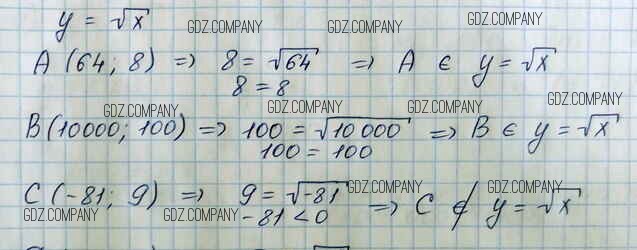 y = √x
GDZ.COMPANY GDZ.COMPANY GDZ.COMPANY
A (64; 8) => 8 = √64 => A ∈ y = √x
8 = 8
GDZ.COMPANY GDZ.COMPANY GDZ.COMPANY GDZ.COMPANY
B (10000; 100) => 100 = √10 000 => B ∈ y = √x
100 = 100
C (-81; 9) => 9 = √-81 => C ∉ y = √x
GDZ.COMPANY GDZ.COMPANY
-81 < 0
GDZ.COMPANY GDZ.COMPANY